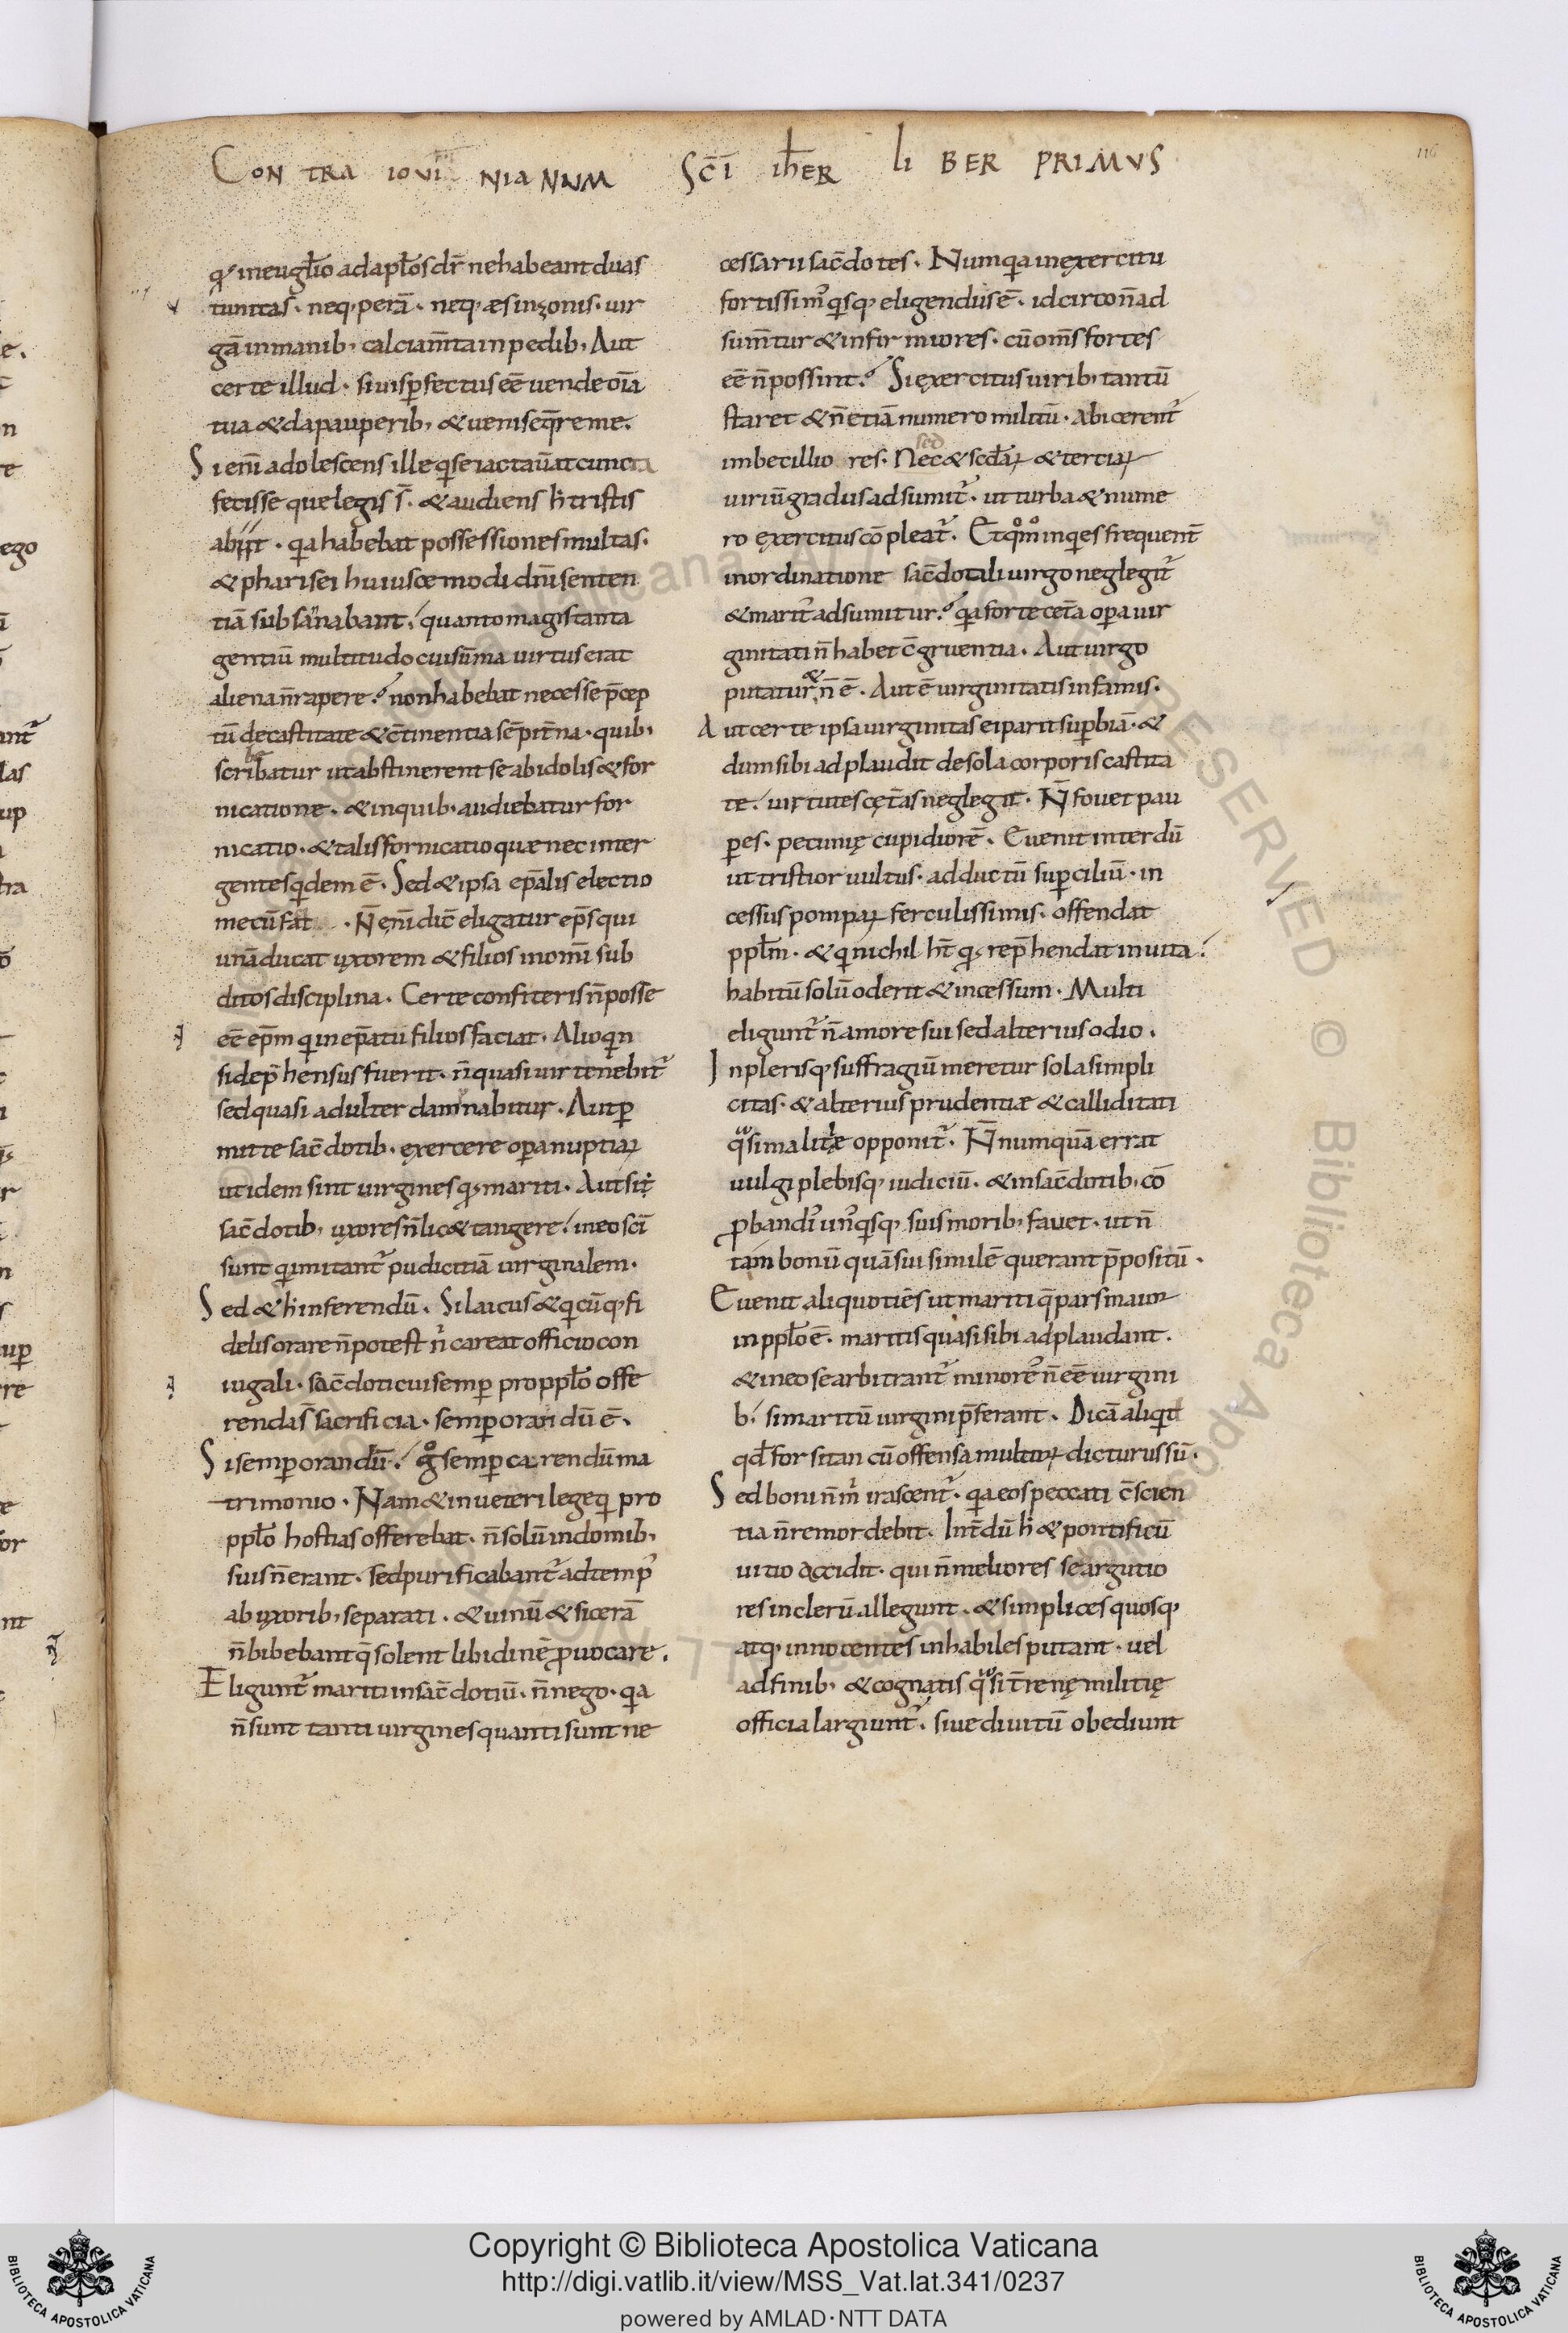 CONTRA IOVINIANUM SC̄I IH̄ER LIBER PRIMVS
116
q' in eugl̄io ad apl̄os dr̄ ne habeant duas
tunicas · neq; perā · neq; aes in zonis · uir
gā in manib; calciam̄ta in pedib; Aut
certe illud · si uis p̄fectus eē uende om̄ia
tua & da pauperib; & ueni seq̄re me.
Si eni̅ adolescens ille q̇ se iactau̅at cuncta
fecisse que legis s̄ · & audiens h̓ tristis
abiit · q̇a habebat possessiones multas ·
& pharisei huiuscemodi dn̄i senten
tiā subsannabant, quanto magis tanta
gentiū multitudo cui sum̄a uirtus erat
aliena n̄ rapere? non habebat necesse p̄cep
tū de castitate & c̄tinentia sēpit̄na · quib;
scribatur ut abstinerent se ab idolis & for
nicatione · & in quib; audiebatur for
nicatio · & talis fornicatio quæ nec inter
gentes q̇dem ē · Sed & ipsa ep̄alis electio
mecū fac · N̄ eni̅ dic̄ eligatur ep̄s qui
unā ducat uxorem & filios in om̄i sub
ditos disciplina · Certe confiteris n̄ posse
eē ep̄m q̇ in ep̄atu filios faciat · Alioq̇n
si dep̄hensus fuerit · n̄ quasi uir tenebit̄
sed quasi adulter damnabitur · Aut p̄
mitte sac̄dotib; exercere op̄a nuptiaꝝ
ut idem sint uirgines q' mariti · Aut si
sac̄dotib; uxores n̄ lic& tangere, in eo sc̄i
sunt q̇ imitant̄ pudicitiā uirginalem ·
Sed & h̓ inferendū · Si laicus & q̇cūq; fi
delis orare n̄ potest n̓ careat officio con
iugali · sac̄doti cui semp̄ pro ppl̄o offe
renda s̄ sacrificia · semp̄ orandū ē ·
Si semp̄ orandū, g̊ semp̄ carendū ma
trimonio · Nam & in ueteri lege q̇ pro
ppl̄o hostias offerebat · n̄ solū in domib;
suis n̄ erant · sed purificabant̄ ad temp̓
ab uxorib; separati · & uinū & sicerā
n̄ bibebant q̄ solent libidinē p̄uocare ·
Eligunt̄ mariti in sac̄dotiū · n̄ nego · q̇a
n̄ sunt tanti uirgines quanti sunt ne
cessarii sac̄dotes · Numq̇a in exercitu
fortissim̓ q̇sq; eligendus ē · idcirco n̄ ad
sum̄tur & infirmiores · cū om̄s fortes
eē n̄ possint? Si exercitus uirib; tantū
staret & n̄ etiā numero militū · abicerent̄
imbecilliores · Nec & scd̄aꝝ & terciaꝝ
sed
uiriū gradus adsumit̄ · ut turba & nume
ro exercitus cōpleat̄ · Et q̊m̊ inq̇es frequent̄
in ordinatione sac̄dotali uirgo neglegit̄
& marit̓ adsumitur? q̇a forte cet̄a op̄a uir
ginitati n̄ habet c̄gruentia · Aut uirgo
putatur & n̄ ē · Aut ē uirginitatis infamis ·
Aut certe ipsa uirginitas ei parit sup̄biā · &
dum sibi adplaudit de sola corporis castita
te, uirtutes cęt̄as neglegit · N̄ fouet pau
p̄es · pecunię cupidiorē · Euenit interdū
ut tristior uultus · adductū sup̄ciliū · in
cessus pompaꝝ ferculis simis · offendat
ppl̄m · & q̇ nichil h̄t q' rep̄hendat in uita,
habitū solū oderit & incessum · Multi
eligunt̄ n̄ amore sui sed alterius odio ·
In plerisq; suffragiū meretur sola simpli
citas · & alterius prudentiæ & calliditati
q̊si malitiæ opponit̄ · N̄ numquā errat
uulgi plebisq; iudiciū · & in sac̄dotib; cō
p̄bandi̓ un̓q̇sq; suis morib; fauet · ut n̄
tam bonū quā sui similē querant p̄positū ·
Euenit aliquotiēs ut mariti q̄ pars maior
in ppl̄o ē · maritis quasi sibi adplaudant ·
& in eo se arbitrant̄ minore̓ n̄ eē uirgini
b; si maritū uirgini p̄ferant · Dicā aliq̇d
qd̄ forsitan cū offensa multoꝝ dicturus sū ·
Sed boni n̄ m̓ irascent̄ · q̇a eos peccati c̄scien
tia n̄ remordebit · Int̄dū h̓ & pontificū
uitio accidit · qui n̄ meliores se argutio
res in clerū allegunt · & simplices quosq;
atq; innocentes inhabiles putant · uel
adfinib; & cognatis q̊si t̄renę militię
officia largiunt̄ · siue diuitū obediunt
Copyright © Biblioteca Apostolica Vaticana
http://digi.vatlib.it/view/MSS_Vat.lat.341/0237
powered by AMLAD·NTT DATA
BIBLIOTECA APOSTOLICA VATICANA
BIBLIOTECA APOSTOLICA VATICANA